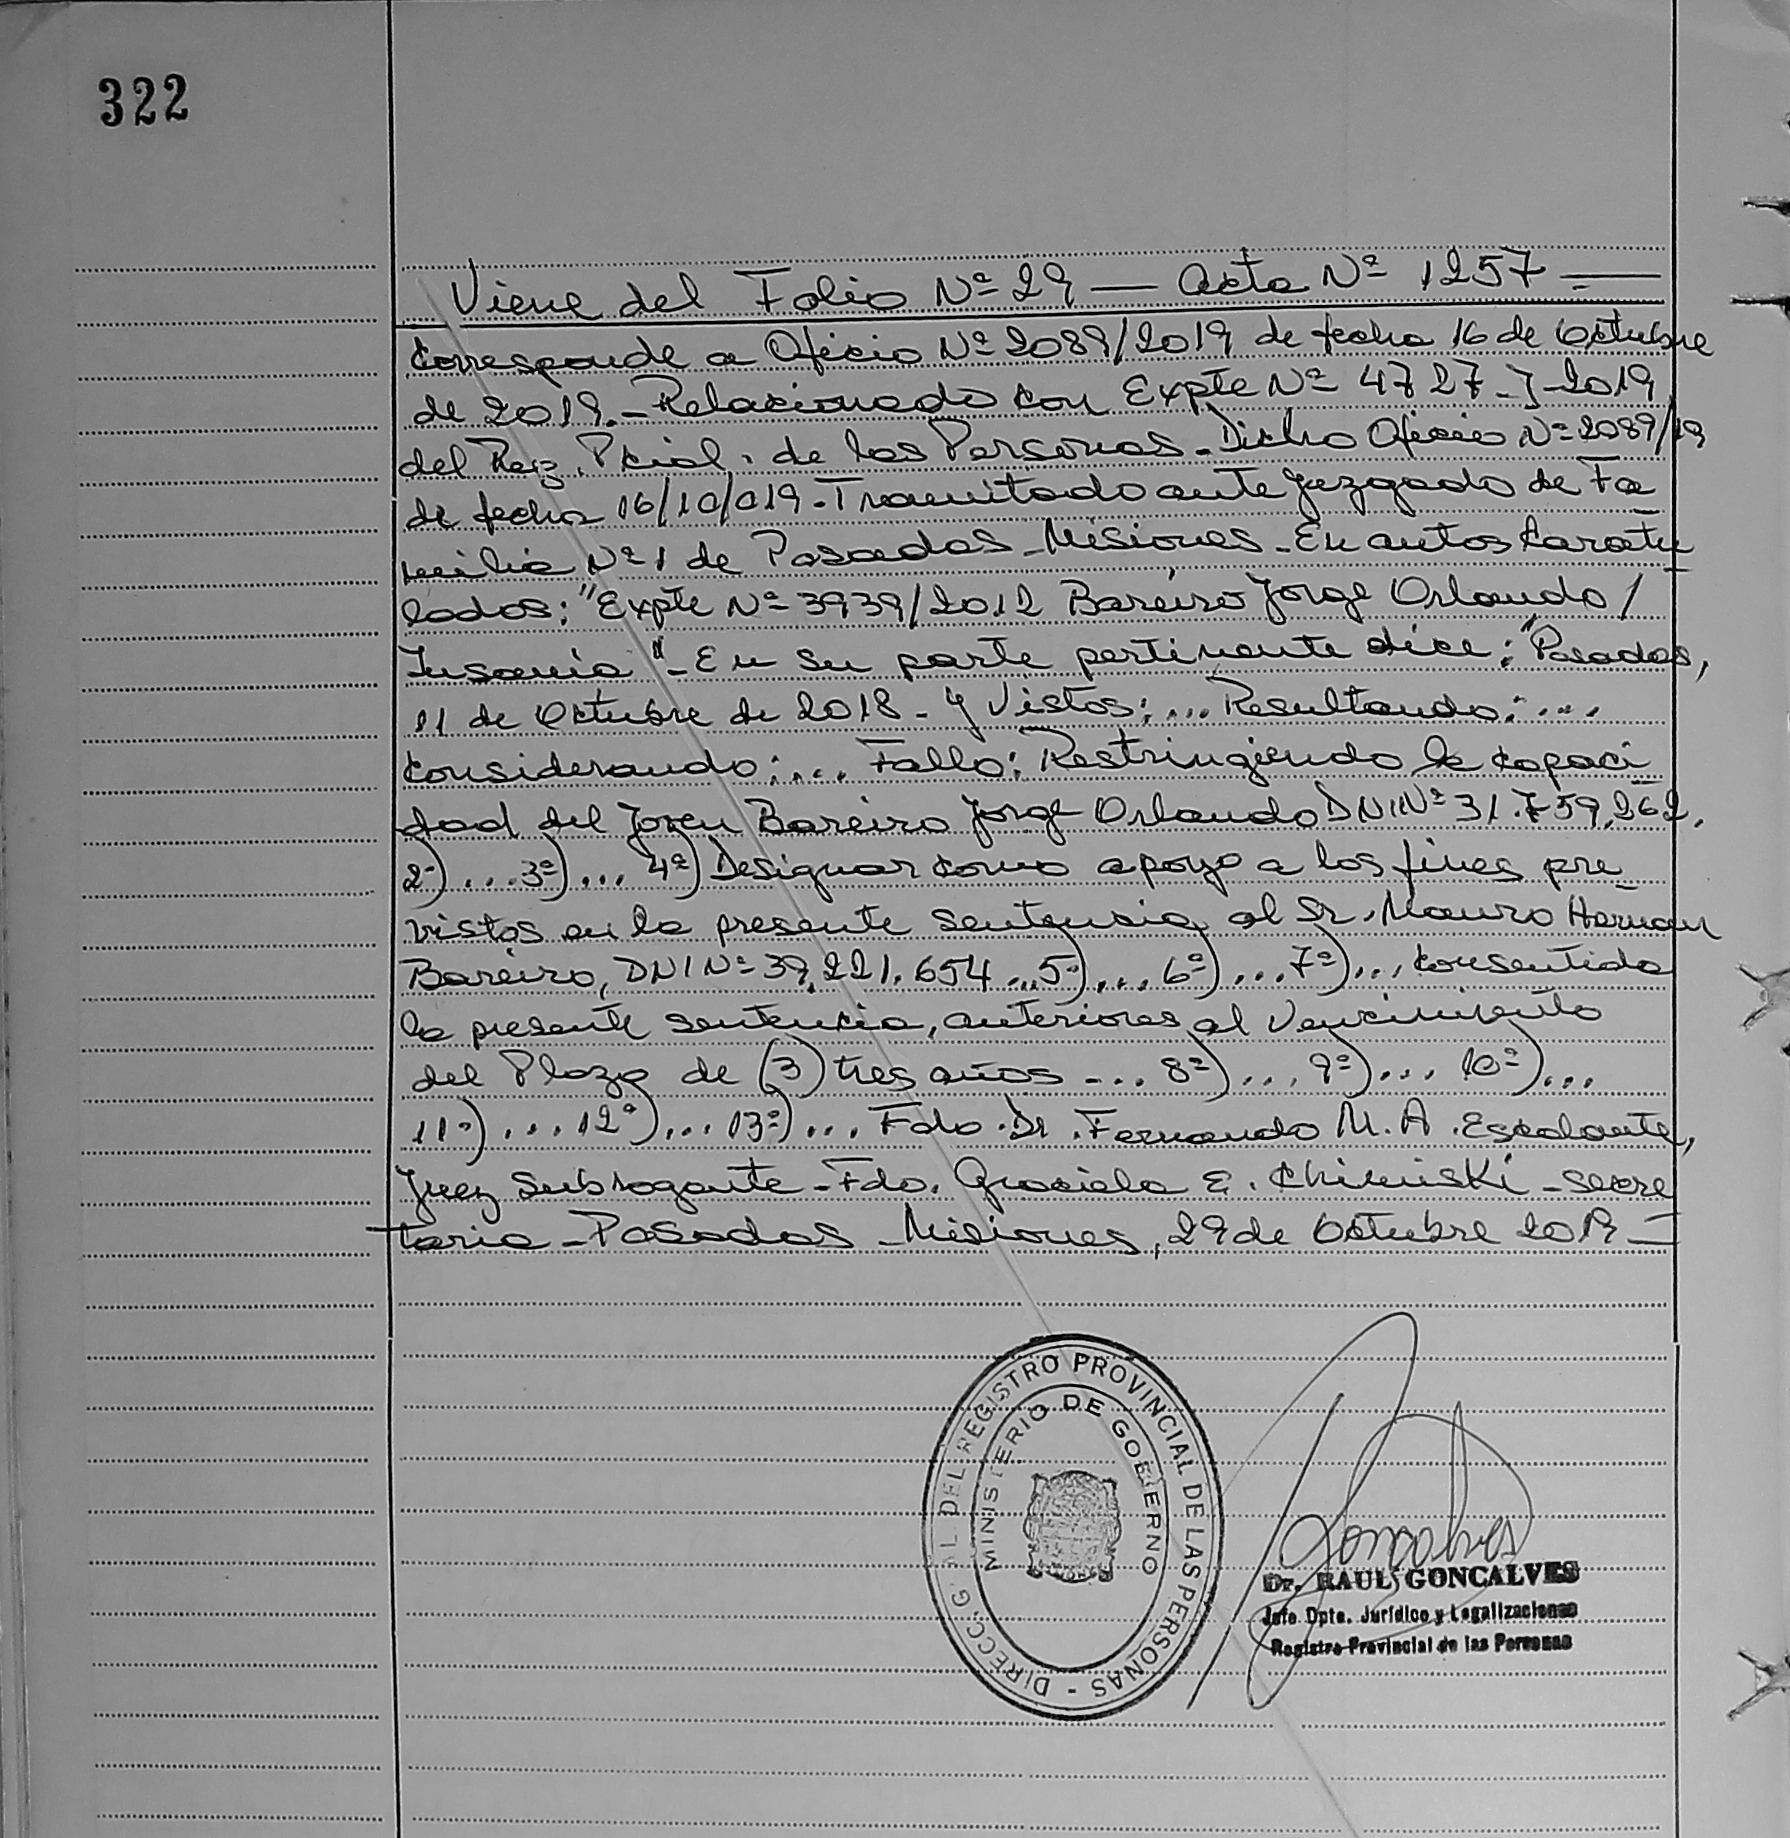 322
Viene del Folio Nº 29 — Acta Nº 1257 =
Corresponde a Oficio Nº 2089/2019 de fecha 16 de Octubre
de 2019.- Relacionado con Expte Nº 4727-J-2019
del Reg. Pcial. de las Personas - Dicho Oficio Nº 2089/19
de fecha 16/10/019 - Tramitado ante Juzgado de Fa
milia Nº 1 de Posadas - Misiones - En autos Caratu
lados: "Expte Nº 3939/2012 Bareiro Jorge Orlando /
Insania" - En su parte pertinente dice: "Posadas,
11 de Octubre de 2018 - Y Vistos: ... Resultando: ...
Considerando: ... Fallo: Restringiendo la capaci
dad del Joven Bareiro Jorge Orlando DNI Nº 31.759.262.
2º) ... 3º) ... 4º) Designar como apoyo a los fines pre_
vistos en la presente sentencia, al Sr. Mauro Hernan
Bareiro, DNI Nº 39.221.654 ... 5º) ... 6º) ... 7º) ... Consentida
la presente sentencia, anteriores al Vencimiento
del Plazo de (3) tres años ... 8º) ... 9º) ... 10º) ...
11º) ... 12º) ... 13º) ... Fdo. Dr. Fernando M. A. Escalante,
Juez Subrogante - Fdo. Graciela E. Chiminski - Secre
taria - Posadas - Misiones, 29 de Octubre 2019 -
DIRECC. G AL DEL REGISTRO PROVINCIAL DE LAS PERSONAS -
MINISTERIO DE GOBIERNO
Goncalves
Dr. RAUL GONCALVES
Jefe Dpto. Jurídico y Legalizaciones
Registro Provincial de las Personas